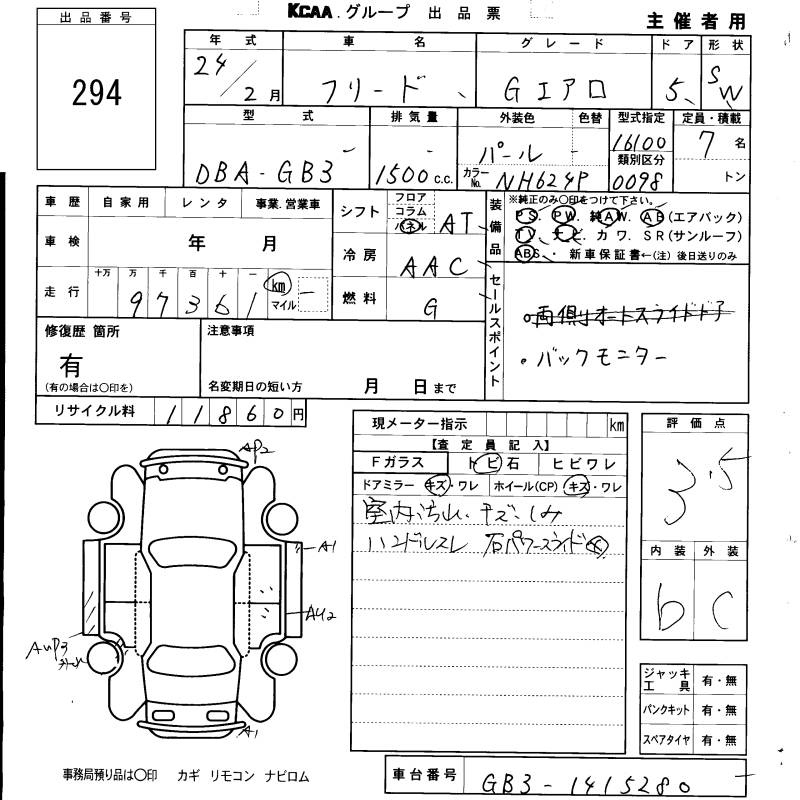 KCAA.グループ 出品票
主催者用
出品番号
294
年式 車名 グレード ドア 形状
24/2月 フリード Gエアロ 5 SW
型式 排気量 外装色 色替 型式指定 定員・積載
DBA-GB3 1500c.c. パール 16100 7名
カラーNo. NH624P 類別区分 0098 トン
車歴 自家用 レンタ 事業.営業車
車検 年 月
走行 十万 万 千 百 十 一 km マイル
97361
シフト フロア コラム パネル AT
冷房 AAC
燃料 G
装備品
※純正のみ〇印をつけて下さい。
PS. PW. 純AW. AB(エアバック)
TV. ナビ カワ. SR(サンルーフ)
ABS. ・ 新車保証書←(注)後日送りのみ
セールスポイント
両側オートスライドドア
・バックモニター
修復歴 箇所
有
(有の場合は〇印を)
注意事項
名変期日の短い方 月 日まで
リサイクル料 11860円
現メーター指示 km
【査定員記入】
Fガラス トビ石 ヒビワレ
ドアミラー キズ・ワレ ホイール(CP) キズ・ワレ
室内汚れ・キズ・しみ
ハンドルスレ 右パワースライド
評価点
3.5
内装 外装
b C
ジャッキ工具 有・無
パンクキット 有・無
スペアタイヤ 有・無
AP2
A1
AU2
AUP3
A1
事務局預り品は〇印 カギ リモコン ナビロム
車台番号 GB3-1415280